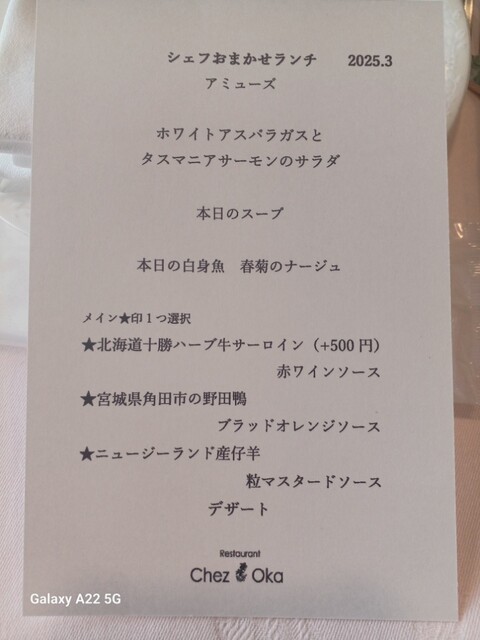 シェフおまかせランチ 2025.3
アミューズ
ホワイトアスパラガスと
タスマニアサーモンのサラダ
本日のスープ
本日の白身魚 春菊のナージュ
メイン★印1つ選択
★北海道十勝ハーブ牛サーロイン（+500円）
赤ワインソース
★宮城県角田市の野田鴨
ブラッドオレンジソース
★ニュージーランド産仔羊
粒マスタードソース
デザート
Restaurant
Chez Oka
Galaxy A22 5G